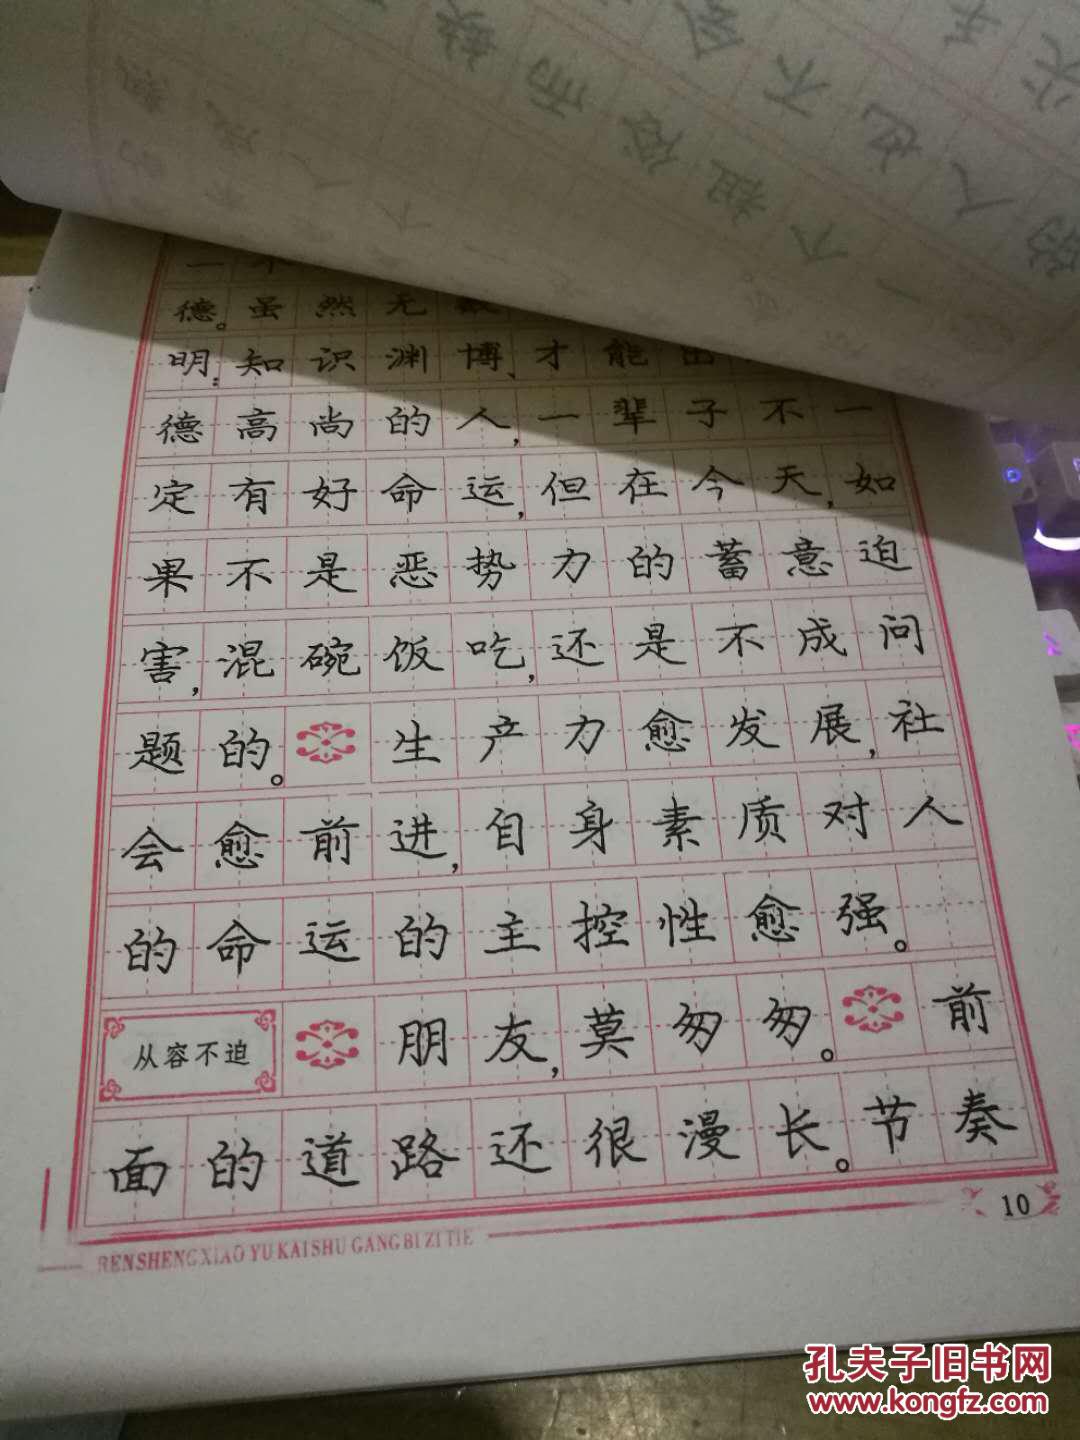 一不
德。虽然无数
明;知识渊博、才能出
德高尚的人,一辈子不一
定有好命运,但在今天,如
果不是恶势力的蓄意迫
害,混碗饭吃,还是不成问
题的。生产力愈发展,社
会愈前进,自身素质对人
的命运的主控性愈强。
从容不迫 朋友,莫匆匆。前
面的道路还很漫长。节奏
10
RENSHENG XIAO YU KAISHU GANGBI ZI TIE
孔夫子旧书网
www.kongfz.com